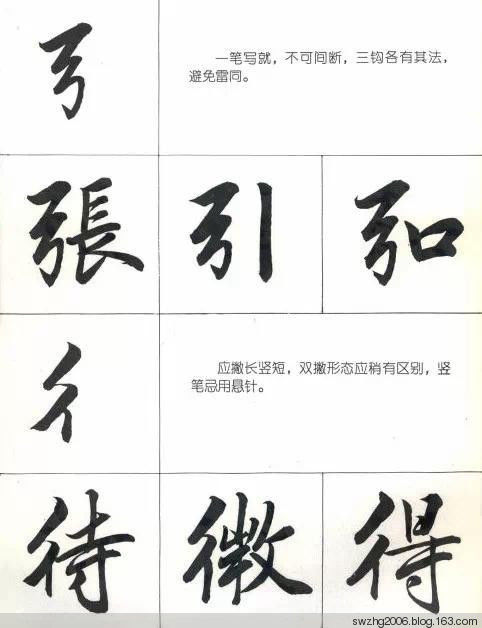 弓
一笔写就，不可间断，三钩各有其法，
避免雷同。
張 引 弘
彳
应撇长竖短，双撇形态应稍有区别，竖
笔忌用悬针。
待 微 得
swzhg2006.blog.163.com